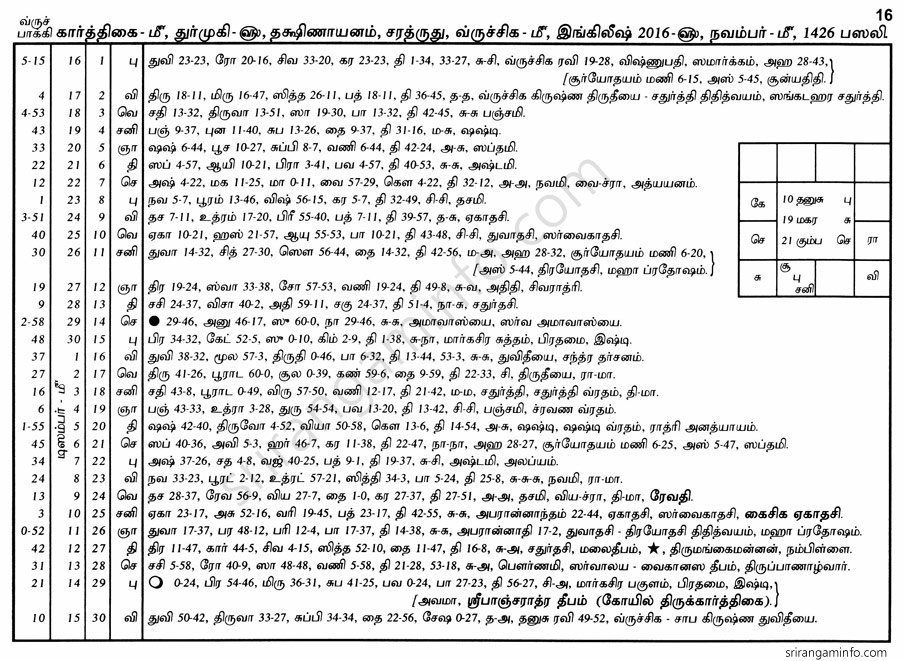 16
வ்ருச்
பாக்கி கார்த்திகை - மீ, துர்முகி - ௵, தக்ஷிணாயனம், சரத்ருது, வ்ருச்சிக - மீ, இங்கிலீஷ் 2016-௵, நவம்பர் - மீ, 1426 பஸலி.
5-15 16 1 பு துவி 23-23, ரோ 20-16, சிவ 33-20, கர 23-23, தி 1-34, 33-27, சு-சி, வ்ருச்சிக ரவி 19-28, விஷ்ணுபதி, ஸமார்க்கம், அஹ 28-43,
[சூர்யோதயம் மணி 6-15, அஸ் 5-45, சூன்யதிதி.
4 17 2 வி திரு 18-11, மிரு 16-47, ஸித்த 26-11, பத் 18-11, தி 36-45, த-த, வ்ருச்சிக கிருஷ்ண திருதீயை - சதுர்த்தி திதித்வயம், ஸங்கடஹர சதுர்த்தி.
4-53 18 3 வெ சதி 13-32, திருவா 13-51, ஸா 19-30, பா 13-32, தி 42-45, சு-சு பஞ்சமி.
43 19 4 சனி பஞ் 9-37, புன 11-40, சுப 13-26, தை 9-37, தி 31-16, ம-சு, ஷஷ்டி.
33 20 5 ஞா ஷஷ் 6-44, பூச 10-27, சுப்பி 8-7, வணி 6-44, தி 42-24, அ-சு, ஸப்தமி.
22 21 6 தி ஸப் 4-57, ஆயி 10-21, பிரா 3-41, பவ 4-57, தி 40-53, சு-சு, அஷ்டமி.
12 22 7 செ அஷ் 4-22, மக 11-25, மா 0-11, வை 57-29, கௌ 4-22, தி 32-12, அ-அ, நவமி, வை-ச்ரா, அத்யயனம்.
1 23 8 பு நவ 5-7, பூரம் 13-46, விஷ் 56-15, கர 5-7, தி 32-49, சி-சி, தசமி.
3-51 24 9 வி தச 7-11, உத்ரம் 17-20, பிரீ 55-40, பத் 7-11, தி 39-57, த-சு, ஏகாதசி.
40 25 10 வெ ஏகா 10-21, ஹஸ் 21-57, ஆயு 55-53, பா 10-21, தி 43-48, சி-சி, துவாதசி, ஸர்வைகாதசி.
30 26 11 சனி துவா 14-32, சித் 27-30, ஸௌ 56-44, தை 14-32, தி 42-56, ம-அ, அஹ 28-32, சூர்யோதயம் மணி 6-20,
[அஸ் 5-44, திரயோதசி, மஹா ப்ரதோஷம்.
19 27 12 ஞா திர 19-24, ஸ்வா 33-38, சோ 57-53, வணி 19-24, தி 49-8, சு-வ, அதிதி, சிவராத்ரி.
9 28 13 தி சசி 24-37, விசா 40-2, அதி 59-11, சகு 24-37, தி 51-4, நா-சு, சதுர்தசி.
2-58 29 14 செ ● 29-46, அனு 46-17, ஸு 60-0, நா 29-46, சு-சு, அமாவாஸ்யை, ஸர்வ அமாவாஸ்யை.
48 30 15 பு பிர 34-32, கேட் 52-5, ஸு 0-10, கிம் 2-9, தி 1-38, சு-நா, மார்கசிர சுத்தம், பிரதமை, இஷ்டி.
டிஸம்பர் - மீ
37 1 16 வி துவி 38-32, மூல 57-3, திருதி 0-46, பா 6-32, தி 13-44, 53-3, சு-சு, துவிதீயை, சந்த்ர தர்சனம்.
27 2 17 வெ திரு 41-26, பூராட 60-0, சூல 0-39, கண் 59-6, தை 9-59, தி 22-33, சி, திருதீயை, ரா-மா.
16 3 18 சனி சதி 43-8, பூராட 0-49, விரு 57-50, வணி 12-17, தி 21-42, ம-ம, சதுர்த்தி, சதுர்த்தி வ்ரதம், தி-மா.
6 4 19 ஞா பஞ் 43-33, உத்ரா 3-28, துரு 54-54, பவ 13-20, தி 13-42, சி-சி, பஞ்சமி, ச்ரவண வ்ரதம்.
1-55 5 20 தி ஷஷ் 42-40, திருவோ 4-52, வியா 50-58, கௌ 13-6, தி 14-54, அ-சு, ஷஷ்டி, ஷஷ்டி வ்ரதம், ராத்ரி அனத்யாயம்.
45 6 21 செ ஸப் 40-36, அவி 5-3, ஹர் 46-7, கர 11-38, தி 22-47, நா-நா, அஹ 28-27, சூர்யோதயம் மணி 6-25, அஸ் 5-47, ஸப்தமி.
34 7 22 பு அஷ் 37-26, சத 4-8, வஜ் 40-25, பத் 9-1, தி 19-37, சு-சி, அஷ்டமி, அலப்யம்.
24 8 23 வி நவ 33-23, பூரட் 2-12, உத்ரட் 57-21, ஸித்தி 34-3, பா 5-24, தி 25-8, சு-சு-சு, நவமி, ரா-மா.
13 9 24 வெ தச 28-37, ரேவ 56-9, விய 27-7, தை 1-0, கர 27-37, தி 27-51, அ-அ, தசமி, விய-ச்ரா, தி-மா, ரேவதி.
3 10 25 சனி ஏகா 23-17, அசு 52-16, வரி 19-45, பத் 23-17, தி 42-55, சு-சு, அபரான்னாந்தம் 22-44, ஏகாதசி, ஸர்வைகாதசி, கைசிக ஏகாதசி.
0-52 11 26 ஞா துவா 17-37, பர 48-12, பரி 12-4, பா 17-37, தி 14-38, சு-சு, அபரான்னாதி 17-2, துவாதசி - திரயோதசி திதித்வயம், மஹா ப்ரதோஷம்.
42 12 27 தி திர 11-47, கார் 44-5, சிவ 4-15, ஸித்த 52-10, தை 11-47, தி 16-8, சு-அ, சதுர்தசி, மலைதீபம், ★, திருமங்கைமன்னன், நம்பிள்ளை.
31 13 28 செ சசி 5-58, ரோ 40-9, ஸா 48-48, வணி 5-58, தி 21-28, 53-18, சு-அ, பௌர்ணமி, ஸர்வாலய - வைகானஸ தீபம், திருப்பாணாழ்வார்.
21 14 29 பு ○ 0-24, பிர 54-46, மிரு 36-31, சுப 41-25, பவ 0-24, பா 27-23, தி 56-27, சி-அ, மார்கசிர பகுளம், பிரதமை, இஷ்டி,
[அவமா, ஸ்ரீபாஞ்சராத்ர தீபம் (கோயில் திருக்கார்த்திகை).
10 15 30 வி துவி 50-42, திருவா 33-27, சுப்பி 34-34, தை 22-56, சேஷ 0-27, த-அ, தனுசு ரவி 49-52, வ்ருச்சிக - சாப கிருஷ்ண துவிதீயை.
கே 10 தனுசு பு
19 மகர சு
செ 21 கும்ப செ ரா
சு சூ பு சனி வி
srirangaminfo.com
srirangaminfo.com